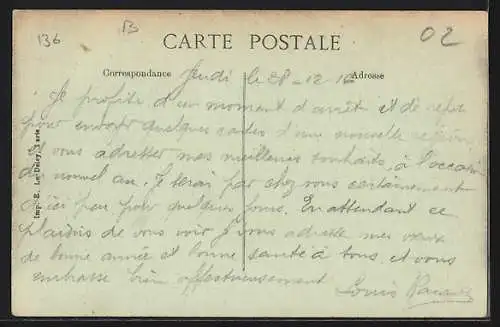 136
B
02
CARTE POSTALE
Correspondance
Adresse
Jeudi le 28-12-16
Je profite d'un moment d'arrêt et de repos
pour envoyer quelques cartes d'une nouvelle région
et vous adresser mes meilleurs souhaits à l'occasion
du nouvel an. Je serai par chez vous certainement
d'ici peu pour quelques jours. En attendant ce
plaisir de vous voir je vous adresse mes vœux
de bonne année et bonne santé à tous, et vous
embrasse bien affectueusement
Louis
Imp. E. Le Deley, Paris